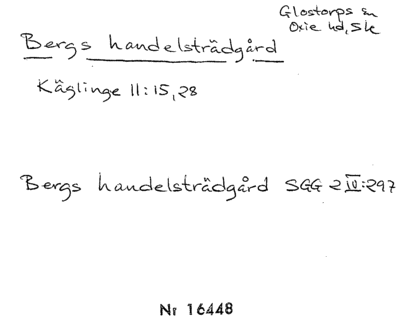 Glostorps sn
Oxie hd, Sk
Bergs handelsträdgård
Käglinge 11:15, 28
Bergs handelsträdgård SGG 2 IV:297
Nr 16448